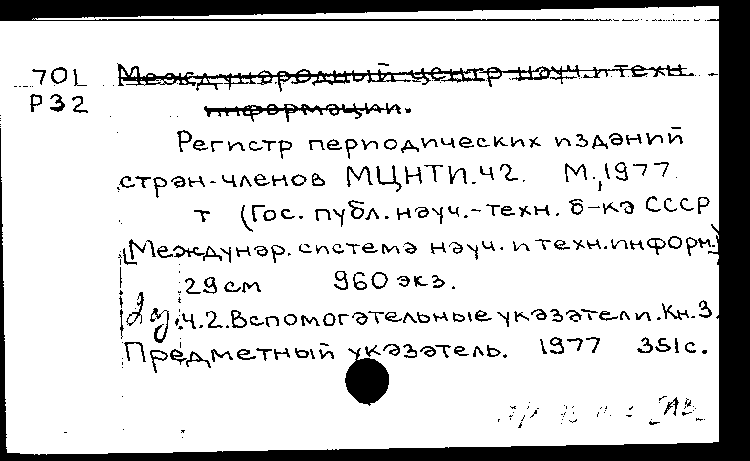 701 Международный центр науч. и техн.
Р32 информации.
Регистр периодических изданий
стран-членов МЦНТИ. Ч2. М., 1977
т (Гос. публ. науч.-техн. б-ка СССР
(Междунар. система науч. и техн. информ.)
29 см 960 экз.
ч.2. Вспомогательные указатели. Кн. 3.
Предметный указатель. 1977 351с.